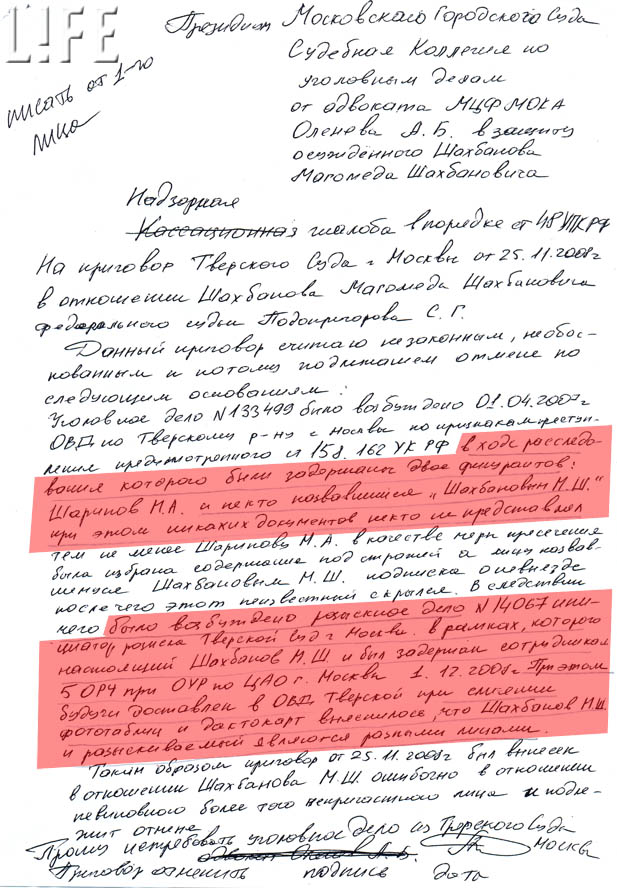 L!FE
Президиум Московского Городского Суда
Судебная Коллегия по
уголовным делам
от адвоката МЦФ МОКА
Оленева А.Б. в защиту
осуждённого Шахбанова
Магомеда Шахбановича
писать от 1-го
лица
Надзорная
Кассационная жалоба в порядке ст 48 УПК РФ
На приговор Тверского Суда г Москвы от 25.11.2008г
в отношении Шахбанова Магомеда Шахбановича
федерального судьи Подопригорова С.Г.
Данный приговор считаю незаконным, необос-
нованным и потому подлежащем отмене по
следующим основаниям:
Уголовное дело N133499 было возбуждено 01.04.2007г
ОВД по Тверскому р-ну г Москвы по признакам преступ-
ления предусмотренного ст 158. 162 УК РФ в ходе расследо-
вания которого были задержаны двое фигурантов:
Шарипов М.А. и некто назвавшийся „Шахбановым М.Ш."
при этом никаких документов некто не представлял
тем не менее Шарипову М.А. в качестве меры пресечения
была избрана содержание под стражей а лицу назвав-
шемуся Шахбановым М.Ш. подписка о невыезде
после чего этот неизвестный скрылся. В следствии
чего было возбуждено розыскное дело N14067 ини-
циатор розыска Тверской суд г Москвы. в рамках, которого
настоящий Шахбанов М.Ш. и был задержан сотрудниками
5 ОРЧ при ОУР по ЦАО г. Москвы 1.12.2008г При этом
будучи доставлен в ОВД Тверской при сличении
фототаблиц и дактокарт выяснилось, что Шахбанов М.Ш.
и разыскиваемый являются разными лицами.
Таким образом приговор от 25.11.2008г был вынесен
в отношении Шахбанова М.Ш. ошибочно в отношении
невиновного более того непричастного лица и подле-
жит отмене
Прошу истребовать уголовное дело из Тверского Суда
адвокат Оленев А.Б. Москвы
Приговор отменить подпись дата